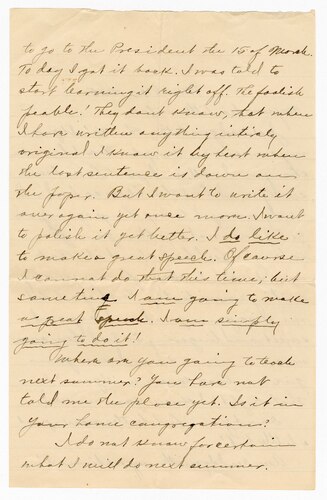 to go to the President the 15 of March.
To day I got it back. I was told to
start learning it right off. The foolish
peable! They dont know, that when
I have written anything intirely
original I know it by heart when
the last sentence is down on
the paper. But I want to write it
over again yet once more. I want
to polish it yet better. I do like
to make a great speech. Of course
I cannot do that this time; but
sometime I am going to make
a great speech. I am simply
going to do it!
Where are you going to teach
next summer? You have not
told me the place yet. Is it in
your home congregation?
I do not know for certain
what I will do next summer.